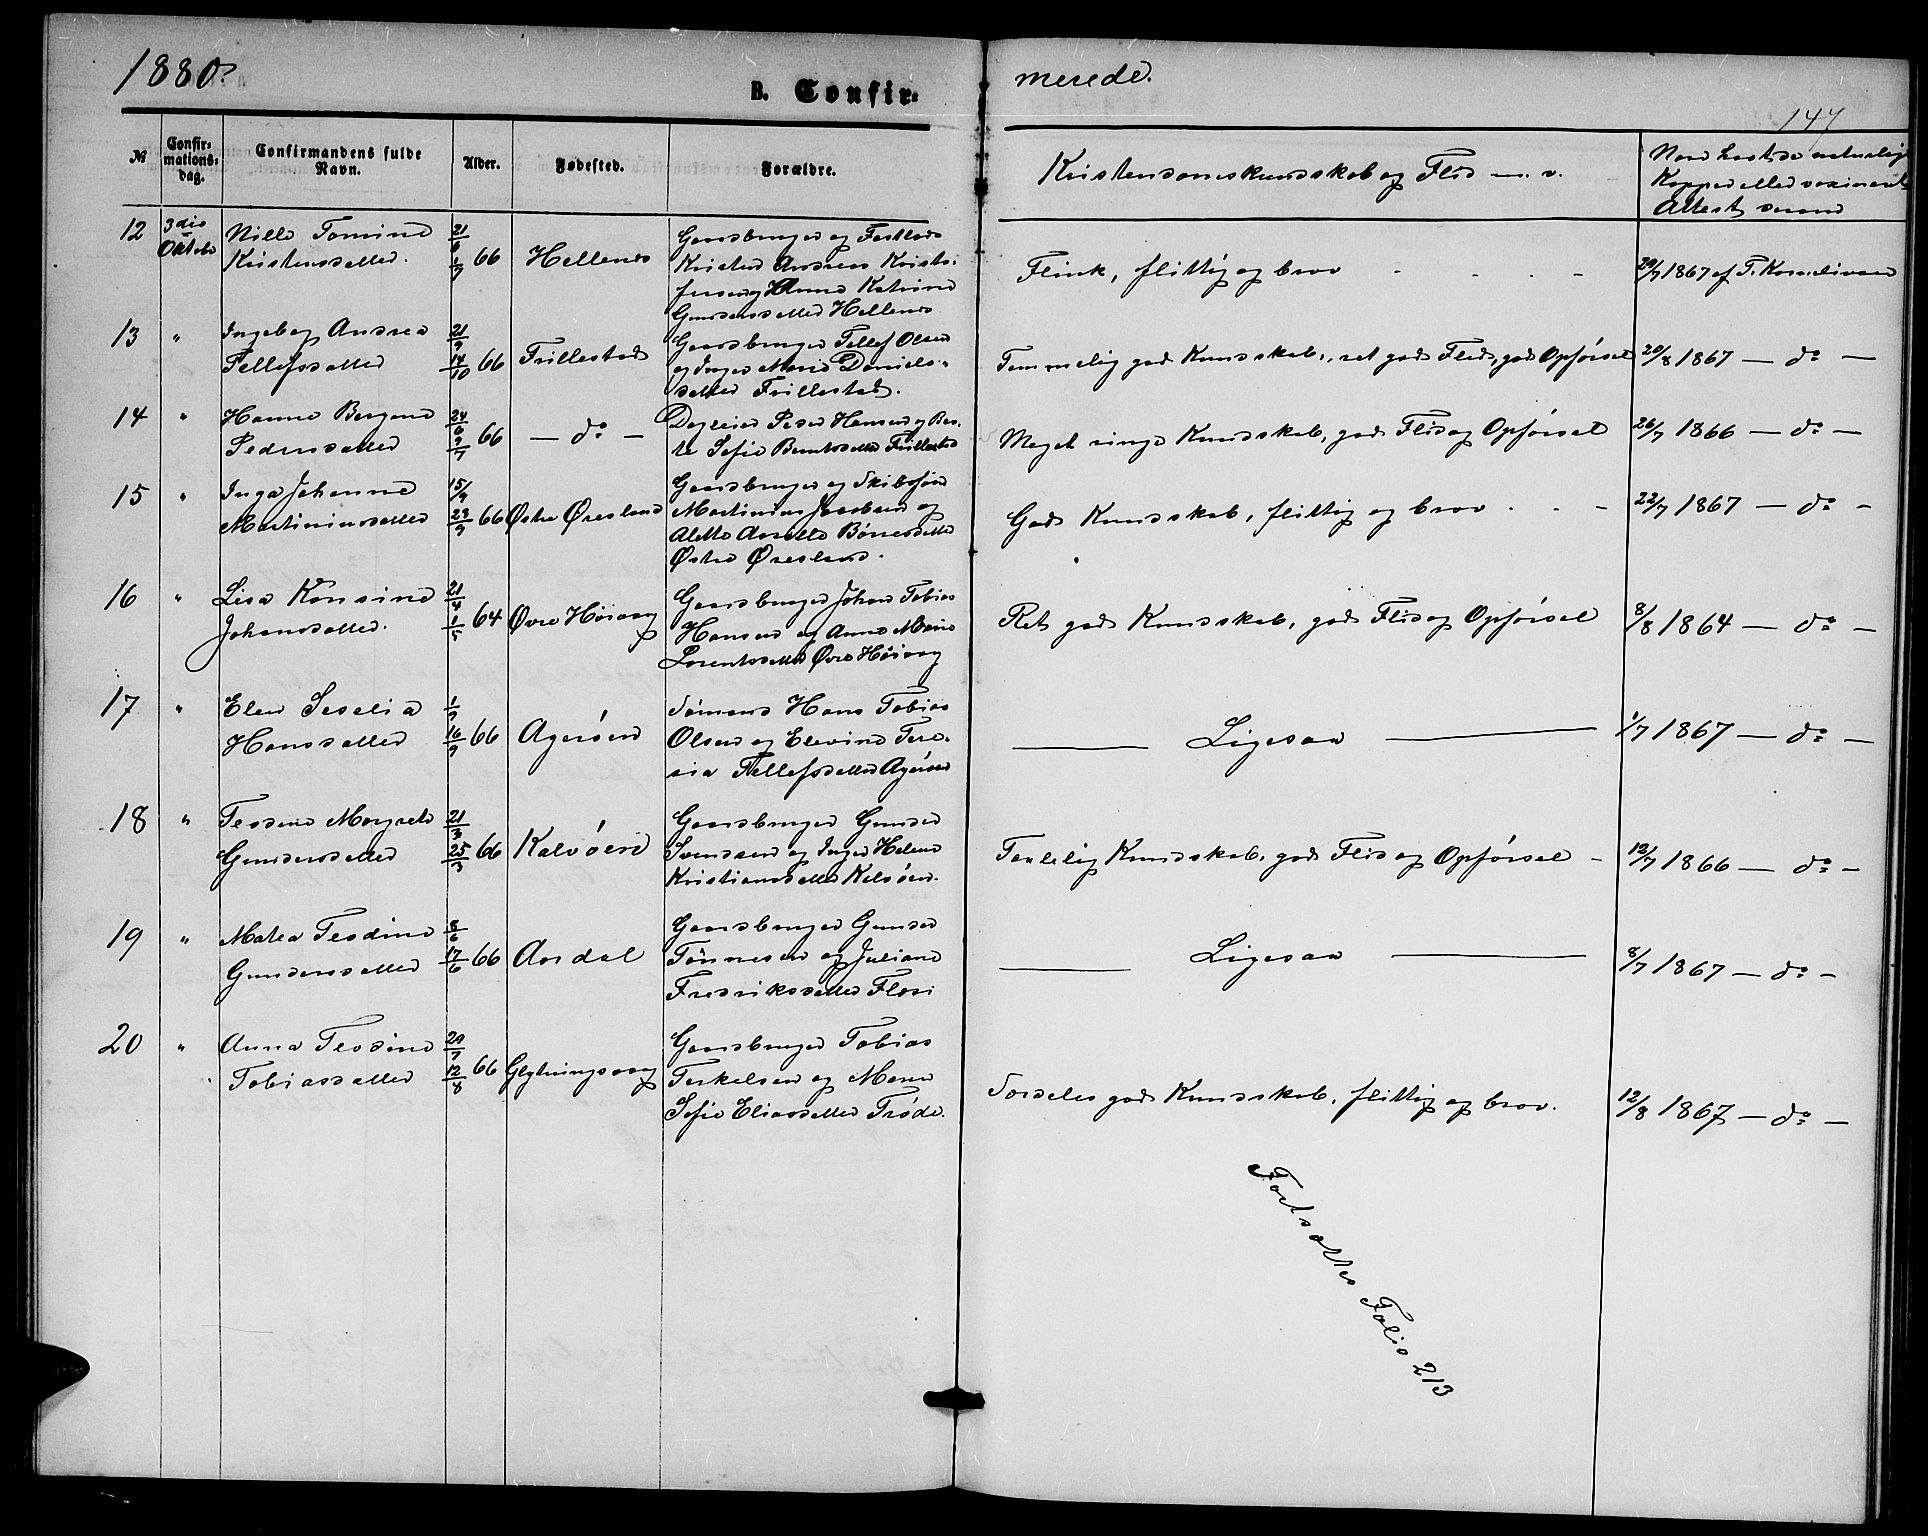 1880.
B. Confir-
merede.
147
№
Confir-
mations-
dag.
Confirmandens fulde
Navn.
Alder.
Fødested.
Forældre.
Kristendomskundskab og Flid m. v.
Naar havt de naturlige
Kopper eller vaccineret
Attest derom
12
3die
Oktober
Nille Tomine
Kristensdatter.
21/6
1/7 66
Hellenes
Gaardbruger og
Kristen Andreas Kristi-
Anna Katrine
Gundersdatter Hellenes
Flink, flittig og brav
29/7 1867 af T. Korneliusen
13
"
Ingeborg Andrea
Tellefsdatter
21/9
14/10 66
Trillestad
Gaardbruger Tellef Olsen
og Inger Marie Daniels-
datter Trillestad.
Temmelig god Kundskab, ret god Flid, god Opførsel
20/8 1867 — do —
14
"
Hanne Bergine
Pedersdatter
24/6
9/7 66
— do —
Peder Hansen og Ber-
te Sofie Berntsdatter Trillestad
Meget ringe Kundskab, god Flid og Opførsel
26/7 1866 — do —
15
"
Inga Johanne
Martiniusdatter
15/9
29/9 66
Østre Øresland
Gaardbruger og Skibsfører
Martinius Jacobsen og
Aletta Amalia
Østre Øresland.
God Kundskab, flittig og brav
22/7 1867 — do —
16
"
Lisa Konsine
Johansdatter.
21/4
1/5 64
Øvre Høivaag
Gaardbruger Johan Tobias
Hansen og Anne Marie
Lorentsdatter Øvre Høivaag
Ret god Kundskab, god Flid og Opførsel
8/8 1864 — do —
17
"
Elen Seselia
Hansdatter
1/9
16/9 66
Agerøen
Sømand Hans Tobias
Olsen og Elevine Tere-
sia Tellefsdatter Agerøen
— Ligesaa —
1/7 1867 — do —
18
"
Teodine Margrete
Gundersdatter
21/3
25/3 66
Kalvøen
Gaardbruger Gunder
Svendsen og Inger Helene
Kristiansdatter Kalvøen.
Taalelig Kundskab, god Flid og Opførsel -
12/7 1866 — do —
19
"
Matea Teodine
Gundersdatter
8/6
17/6 66
Aasdal
Gaardbruger Gunder
Tønnesen og Juliane
Fredriksdatter
— Ligesaa —
8/7 1867 — do —
20
"
Anna Teodine
Tobiasdatter
29/7
12/8 66
Gaardbruger Tobias
Terkelsen og Maren
Sofie Eliasdatter Trøde.
Særdeles god Kundskab, flittig og brav.
12/8 1867 — do —
Fortsættes Folio 213